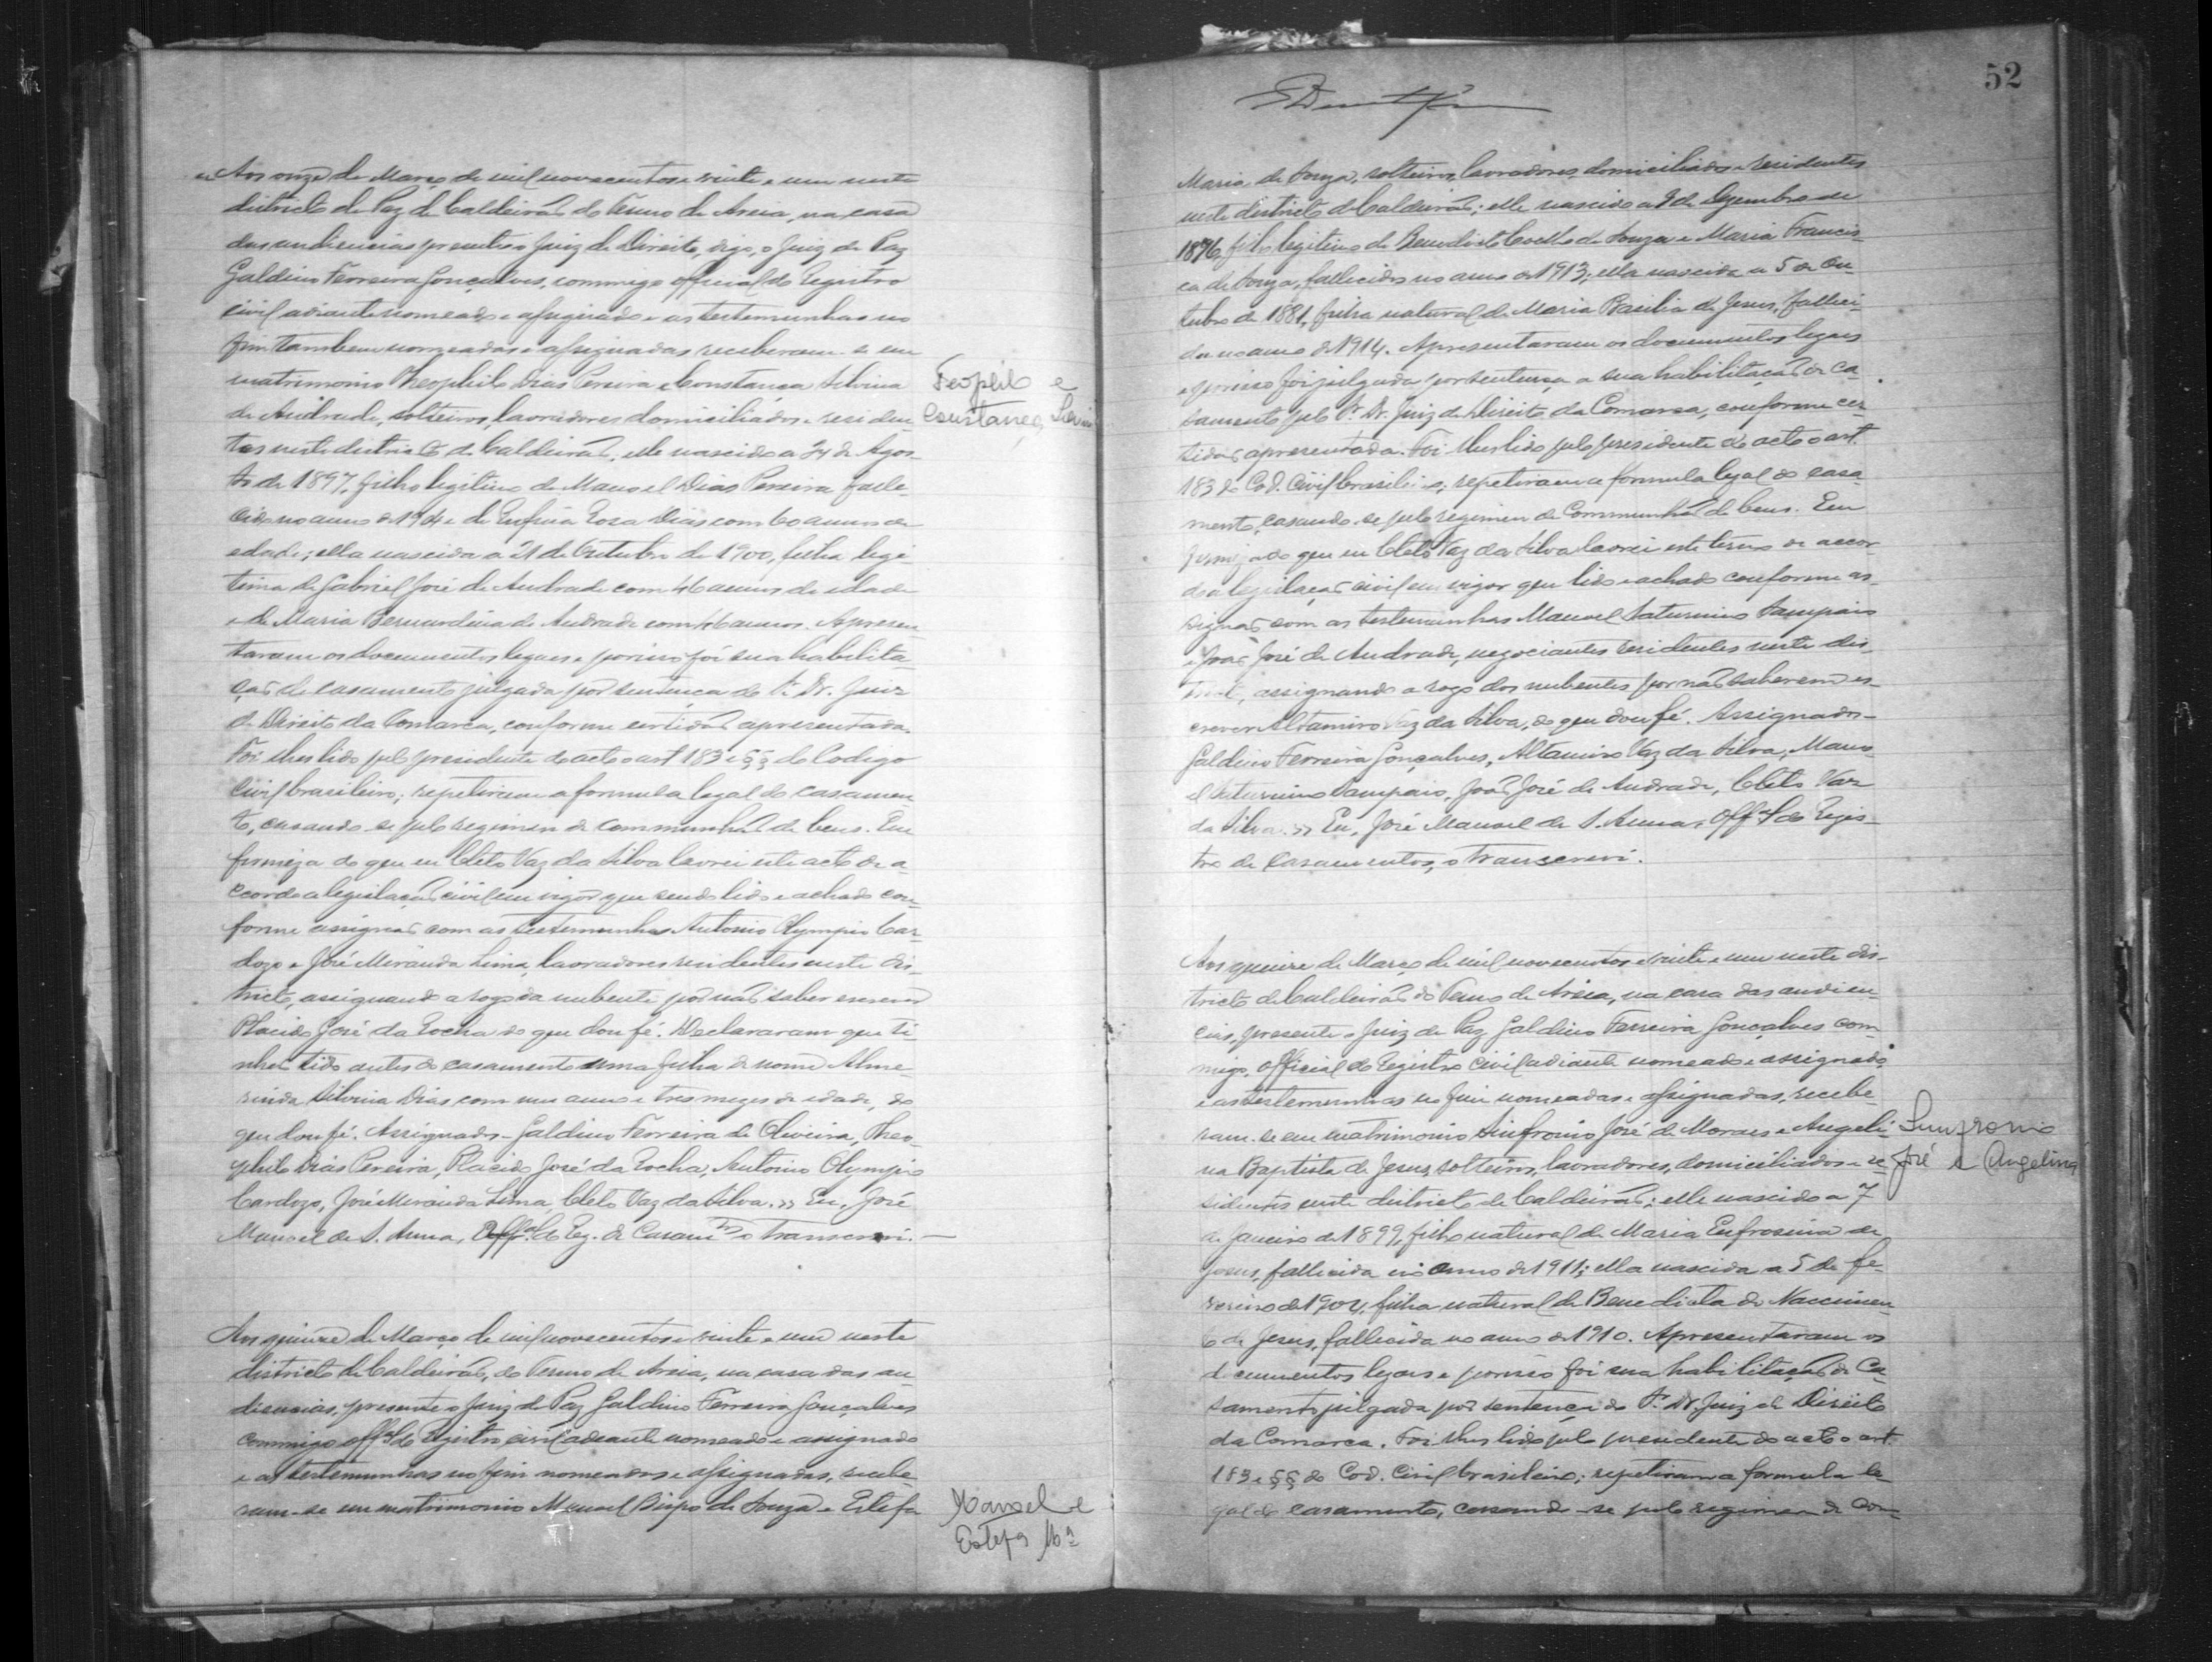 Aos onze de Março de mil novecentos e vinte e um neste
districto de Paz de Caldeirão do Termo de Areia, na casa
das audiencias presente o Juiz de Direito, digo, o Juiz de Paz
Galdino Ferreira Gonçalves, commigo official do Registro
civil adiante nomeado e assignado e as testemunhas no
fim tambem nomeadas e assignadas receberam-se em
matrimonio Theophilo Dias Pereira e Constança Silvina
de Andrade, solteiros, lavradores domiciliados e residen-
tes neste districto de Caldeirão, elle nascido a 24 de Agos-
to de 1897, filho legitimo de Manoel Dias Pereira falle-
cido no anno de e de Rosa Dias com 60 annos de
edade; ella nascida a 21 de Outubro de 1900, filha legi-
tima de Gabriel José de Andrade com 46 annos de edade
e de Maria Bernardina de Andrade com 46 annos. Apresen-
taram os documentos legaes e por isso foi sua habilita-
ção de casamento julgada por sentença do Sr. Dr. Juiz
de Direito da Comarca, conforme certidão apresentada.
Foi lhes lido pelo presidente do acto o art 183 e §§ do Codigo
Civil brasileiro; repetiram a formula legal do casamen-
to, casando-se pelo regimen de communhão de bens. Em
firmeza do que eu Cleto Vaz da Silva lavrei este acto de a-
ccordo a legislação civil em vigor que sendo lido e achado con-
forme assignão com as testemunhas Antonio Olympio Car-
dozo e José Miranda Lima, lavradores residentes neste dis-
tricto, assignando a rogo da nubente por não saber escrever
Placido José da Rocha do que dou fé. Declararam que ti-
nham tido antes do casamento uma filha de nome Alme-
rinda Silvina Dias com um anno e tres mezes de edade, do
que dou fé. Assignados - Galdino Ferreira de Oliveira, Theo-
philo Dias Pereira, Placido José da Rocha, Antonio Olympio
Cardozo, José Miranda Lima, Cleto Vaz da Silva. » Eu, José
Manoel de S. Anna, Offal. do Reg. de Casamtos o transcrevi.
Teophilo e
Constança Silvina
Aos quinze de Março de mil novecentos e vinte e um neste
districto de Caldeirão, do Termo de Areia, na casa das au-
diencias, presente o Juiz de Paz Galdino Ferreira Gonçalves
commigo offal do Registro civil adeante nomeado e assignado
e as testemunhas no fim nomeadas e assignadas, recebe-
ram-se em matrimonio Manoel Bispo de Souza e Estefa
Manoel e
Estefa Mª
52
Maria de Souza, solteiros, lavradores, domiciliados e residentes
neste districto de Caldeirão; elle nascido a 9 de Dezembro de
1876, filho legitimo de Benedicto Coelho de Souza e Maria Francis-
ca de Souza, fallecidos no anno de 1913; ella nascida a 5 de Ou-
tubro de 1881, filha natural de Maria Basilia de Jesus, falleci-
da no anno de 1914. Apresentaram os documentos legaes
e por isso foi julgada por sentença a sua habilitação de ca-
samento pelo Sr. Dr. Juiz de Direito da Comarca, conforme cer-
tidão apresentada. Foi lhes lido pelo presidente do acto o art.
183 do Cod. Civil brasileiro; repetiram a formula legal do casa-
mento, casando-se pelo regimen de Communhão de bens. Em
firmeza do que eu Cleto Vaz da Silva lavrei este termo de accor-
do a legislação civil em vigor que lido e achado conforme as-
signão com as testemunhas Manoel Saturnino Sampaio
e João José de Andrade, negociantes residentes neste dis-
tricto, assignando a rogo dos nubentes por não saberem es-
crever Altamiro Vaz da Silva, do que dou fé. Assignados -
Galdino Ferreira Gonçalves, Altamiro Vaz da Silva, Mano-
el Saturnino Sampaio, João José de Andrade, Cleto Vaz
da Silva. » Eu, José Manoel de S. Anna, Offal do Regis-
tro de Casamentos, o transcrevi.
Aos quinze de Março de mil novecentos e vinte e um neste dis-
tricto de Caldeirão do Termo de Areia, na casa das audien-
cias, presente o Juiz de Paz Galdino Ferreira Gonçalves com-
migo, official do Registro Civil adiante nomeado e assignado,
e as testemunhas no fim nomeadas e assignadas, recebe-
ram-se em matrimonio Sinfronio José de Moraes e Angeli-
na Baptista de Jesus, solteiros, lavradores, domiciliados e re-
sidentes neste districto de Caldeirão; elle nascido a 7
de Janeiro de 1899, filho natural de Maria Eufrosina de
Jesus, fallecida no anno de 1911; ella nascida a 5 de fe-
vereiro de 1904, filha natural de Benedicta do Nascimen-
to de Jesus, fallecida no anno de 1910. Apresentaram os
documentos legaes e por isso foi sua habilitação de Ca-
samento julgada por sentença do Sr. Dr. Juiz de Direito
da Comarca. Foi lhes lido pelo presidente do acto o art.
183 e §§ do Cod. Civil brasileiro; repetiram a formula le-
gal do casamento, casando-se pelo regimen de Com-
Sinfronio
José e Angelina